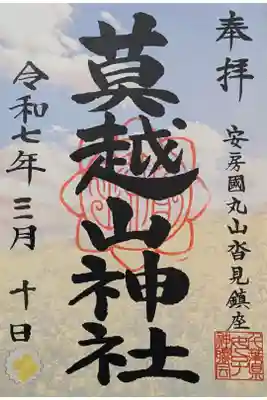 奉拝
安房國丸山沓見鎮座
莫越山神社
令和七年三月十日